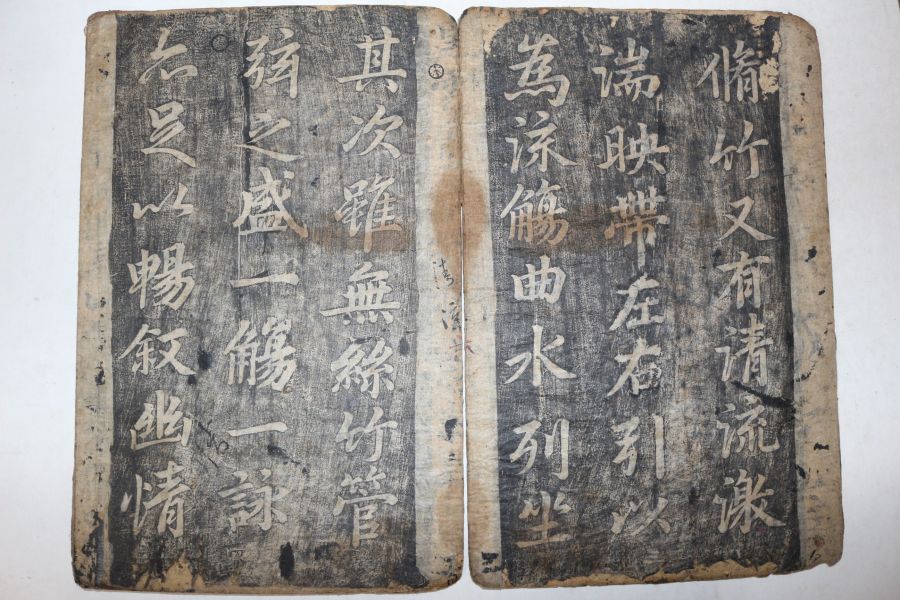 脩竹又有清流激
湍映帶左右引以
為流觴曲水列坐
其次雖無絲竹管
弦之盛一觴一詠
亦足以暢叙幽情